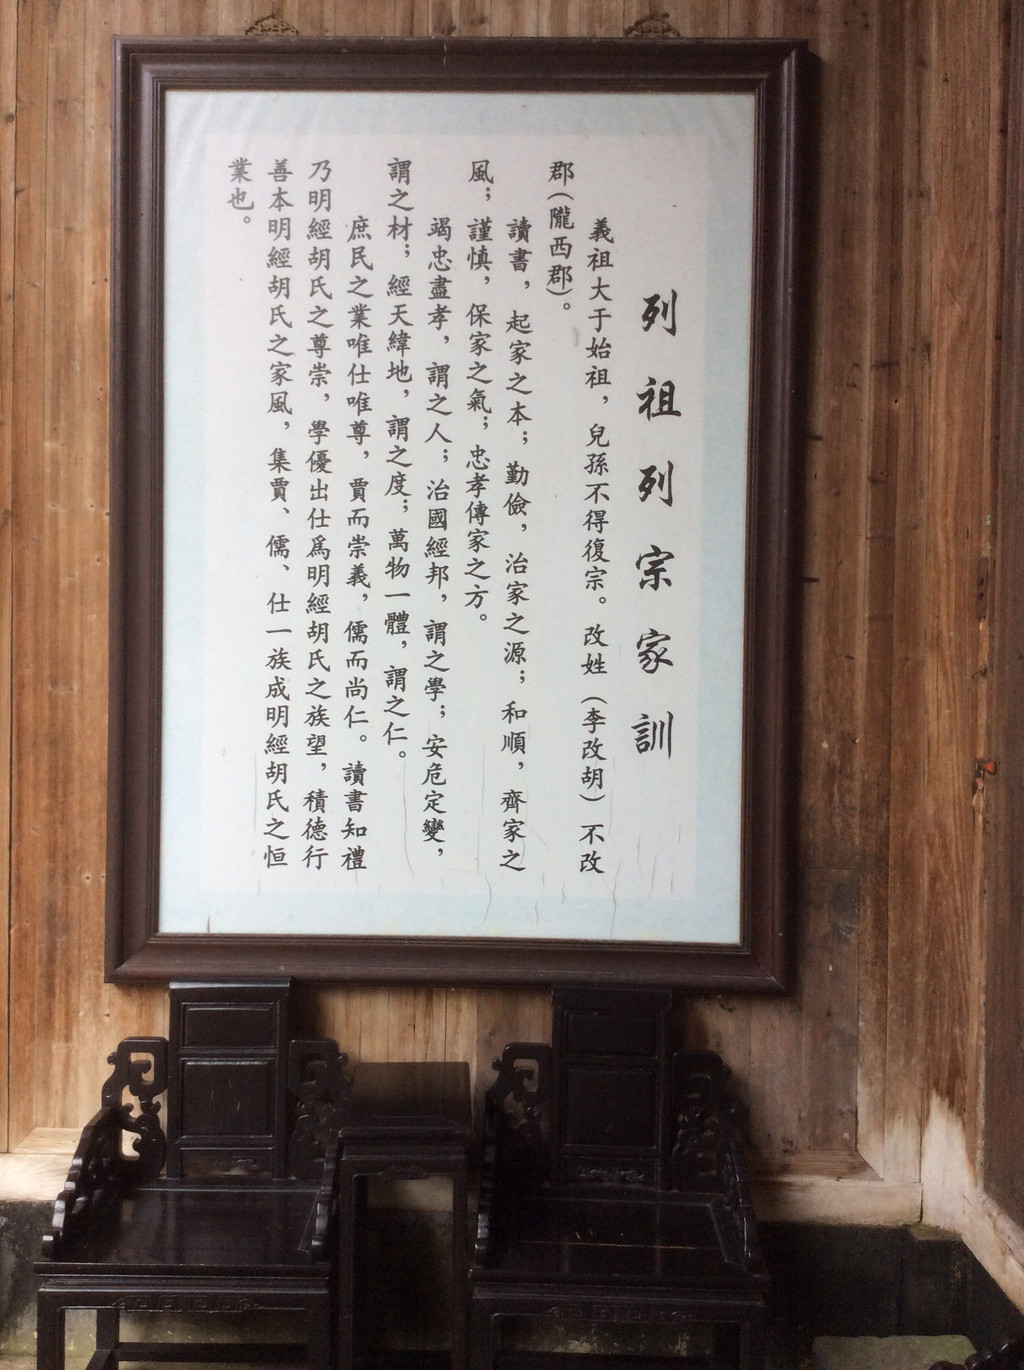 列祖列宗家訓
義祖大于始祖，兒孫不得復宗。改姓（李改胡）不改
郡（隴西郡）。
讀書，起家之本；勤儉，治家之源；和順，齊家之
風；謹慎，保家之氣；忠孝傳家之方。
竭忠盡孝，謂之人；治國經邦，謂之學；安危定變，
謂之材；經天緯地，謂之度；萬物一體，謂之仁。
庶民之業唯仕唯尊，賈而崇義，儒而尚仁。讀書知禮
乃明經胡氏之尊崇，學優出仕爲明經胡氏之族望，積德行
善本明經胡氏之家風，集賈、儒、仕一族成明經胡氏之恒
業也。